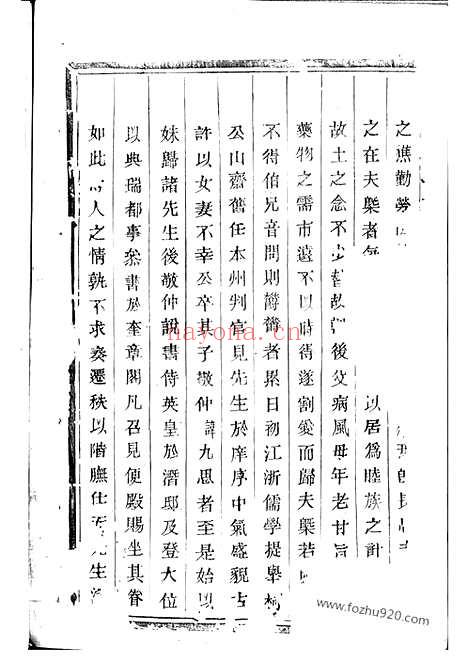 之譙勤勞
之在夫槩者 以居爲睦族之計
故土之念不 後父病風母年老甘旨
藥物之需市遠不以時得遂割愛而歸夫槩若
不得伯兄音問則鬱鬱者累日初江浙儒學提舉柯
公山齋舊任本州判官見先生於庠序中氣盛貌古
許以女妻不幸公卒其子敬仲諱九思者至是始以
妹歸諸先生後敬仲以書侍英皇於潛邸及登大位
以典瑞都事叅書於奎章閣凡召見便殿賜坐其眷
如此 人之情孰不求奏遷秩以階膴仕 先生
hayona.cn
www.fozhu920.com